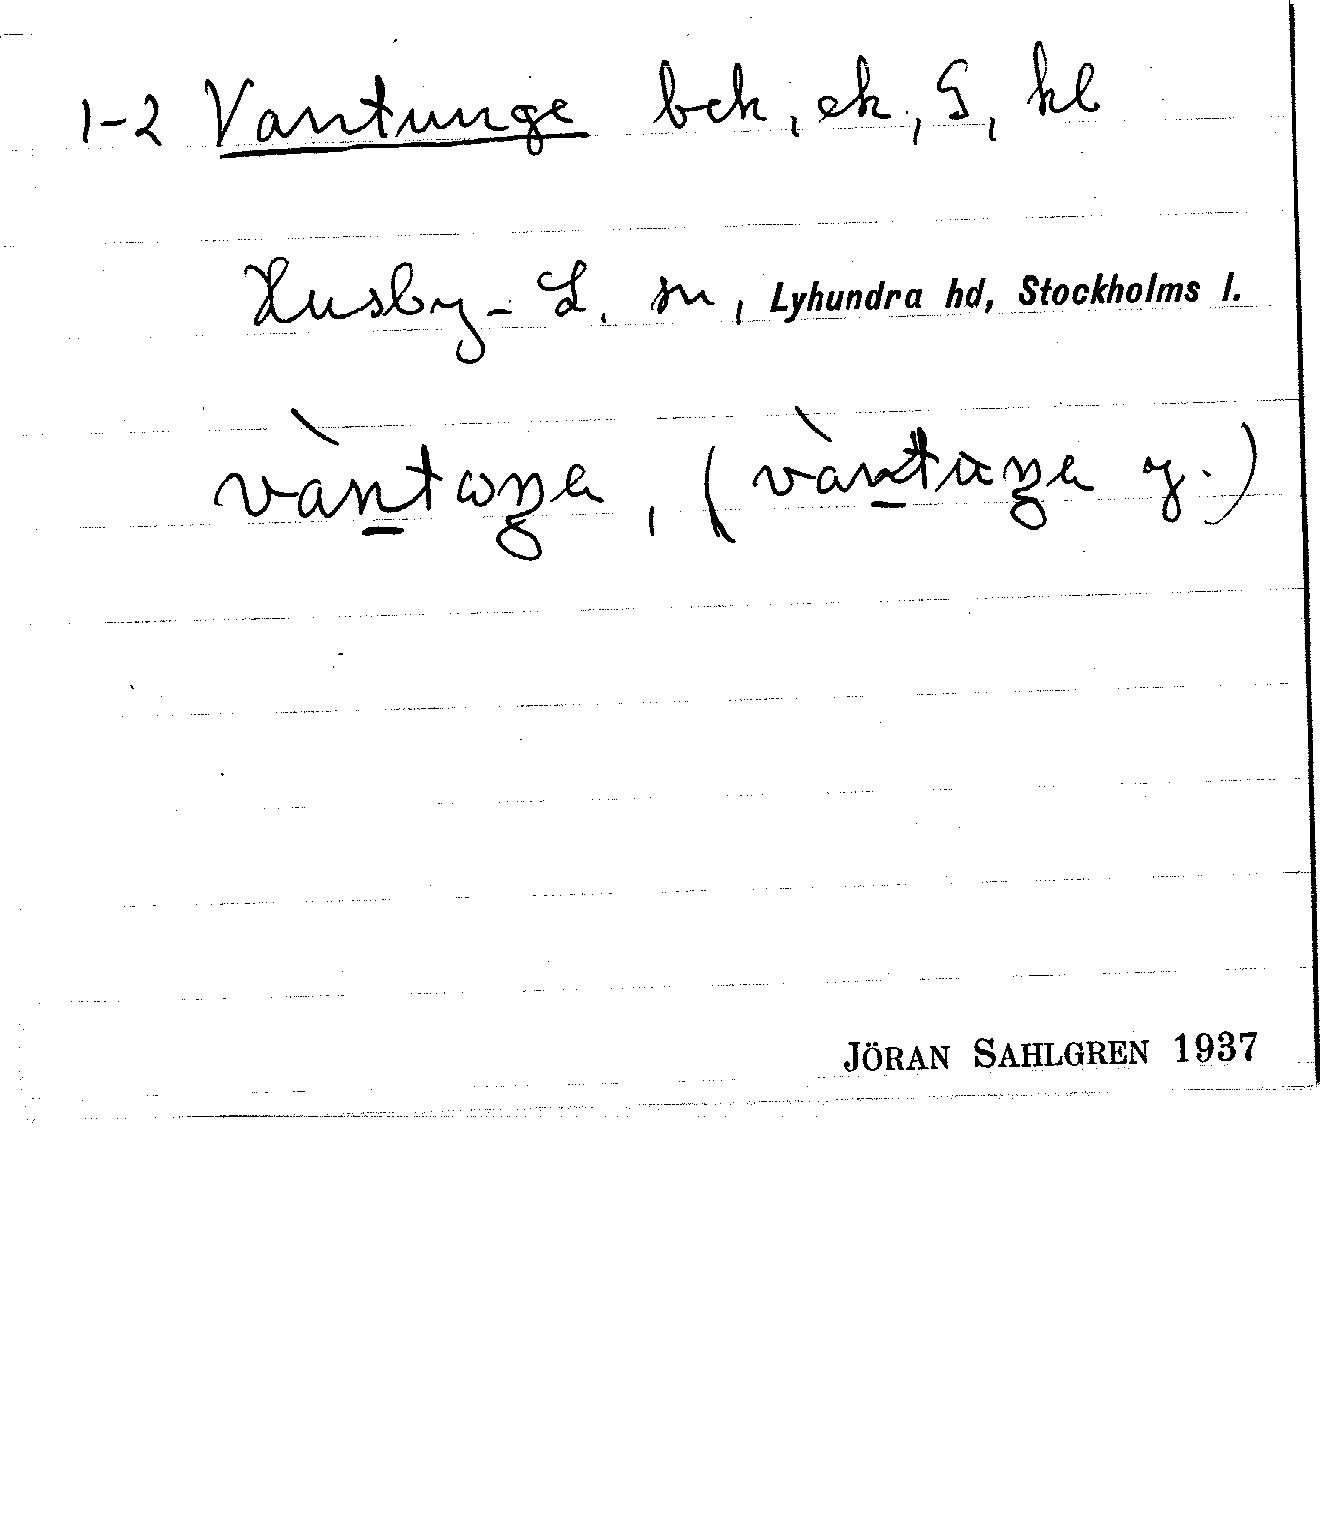 1-2 Vantunge bck, ek, G, kl
Husby-L. sn, Lyhundra hd, Stockholms l.
vàntωŋа, (vàntuŋа y.)
JÖRAN SAHLGREN 1937